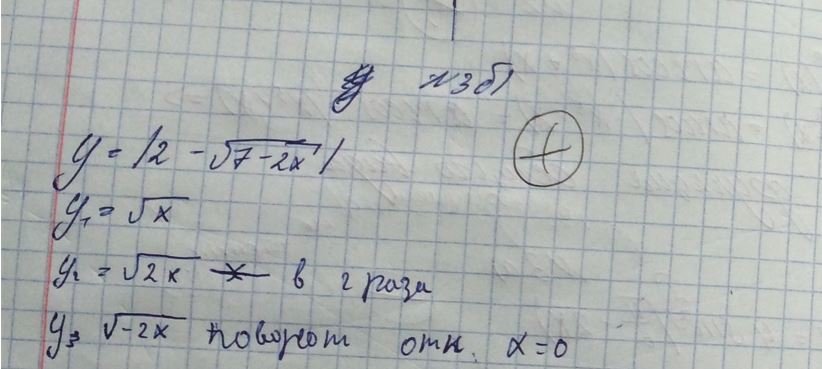 №3б)
y = |2 - √7-2x|
y₁ = √x
y₂ = √2x в 2 раза
y₃ √-2x поворот отн. x=0